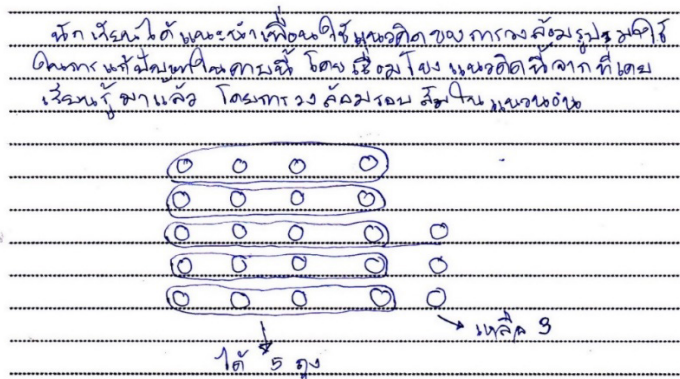 นักเรียนได้แนะนำเพื่อนใช้แนวคิดของการวงล้อมรูปมาใช้
ในการแก้ปัญหาในคาบนี้ โดยเชื่อมโยงแนวคิดนี้จากที่เคย
เรียนรู้มาแล้ว โดยการวงล้อมรอบส้มในแนวนอน
เหลือ 3
ได้ 5 ถุง